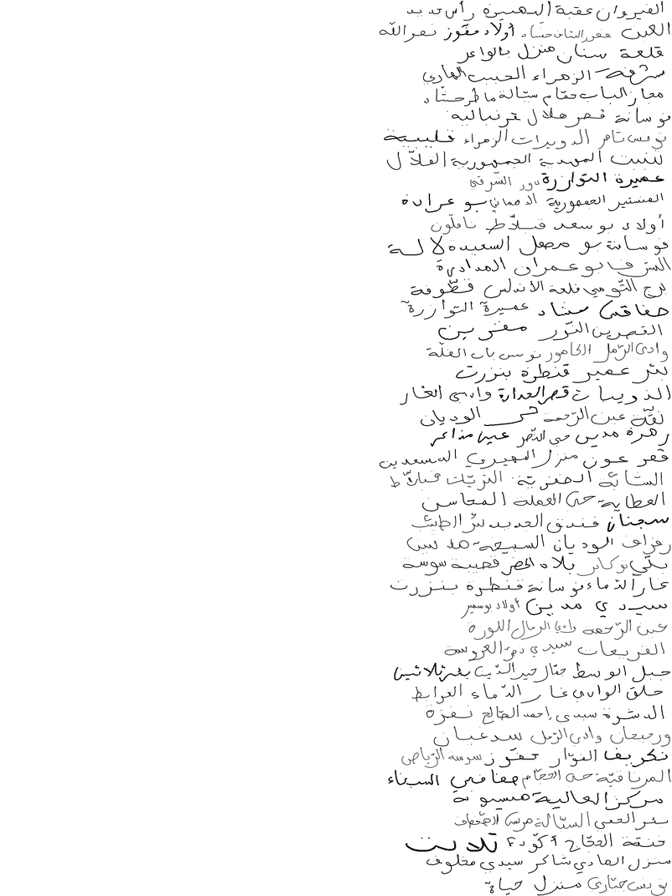 القيروان عقبة الدهسرة رأس جديد
العين قصر البنات حشاد أولاد معتوز نصر الله
قلعة سنان منزل بالواعر
شرفة الزهراء الحبيب الهادي
معاز الباب حمّام سيّالة ماطر حشاد
بوسانة قصر هلال غرنباليه
تونس تامر الدويرات الزهراء قليبية
للبنت المهدية الجمهورية القلاّل
عميرة التوازرة دور الشرفي
المنستير الجمهورية الدهماني بو عرادة
أولاد بوسعد قبلاّط نافلون
فوسانة بو مهل السعيدة لالة
الشرف بو عمران المدادرة
برج التومي قلعة الأندلس قطّوفة
صفاقس ستاد عميرة التوازرة
القصرين النّور مغزين
وادي الرّمل الحامور تونس باب القلّة
بئر عمير قنطرة بنزرت
الذويبات قصر العدارة وادي الغار
نقّة عين الرّحمة شر الوديان
زهرة مدين حي النّصر عين مذاكر
قصر عون منزل المهيري المسعدين
السّائبة الصخرية الزيّات قبلاّط
العطاية حي العملة المحاسن
سجنان فندق الجديد بئر الطيب
رفراف الوديان السبيخة مدنين
بني بوكابر بلاد الحضر قصيبة سوسة
غار الدّماء بوسانة قنطرة بنزرت
سيدي مدين أولاد بوسمير
عين الرّحمة وادي الرمال اللوزة
القريعات سيدي دمر العروسة
جبل الوسط جمّال خير الدّين بئر ثلاثين
حلق الوادي غار الدّماء المرابط
الدشرة سيدي أحمد الصّالح نفزة
ورجيهان وادي الرّمل سدغيان
نكريف النوّار معتوز سوسة الرّياض
المرناقيّة حي الحجّام صفاقس السيناء
مركز العالية ميسونة
بئر الحفي السيّالة مرسى
خنقة الحجّاج أكّودة تلابت
منزل الهادي شاكر سيدي مخلوف
تونس منزل حياة